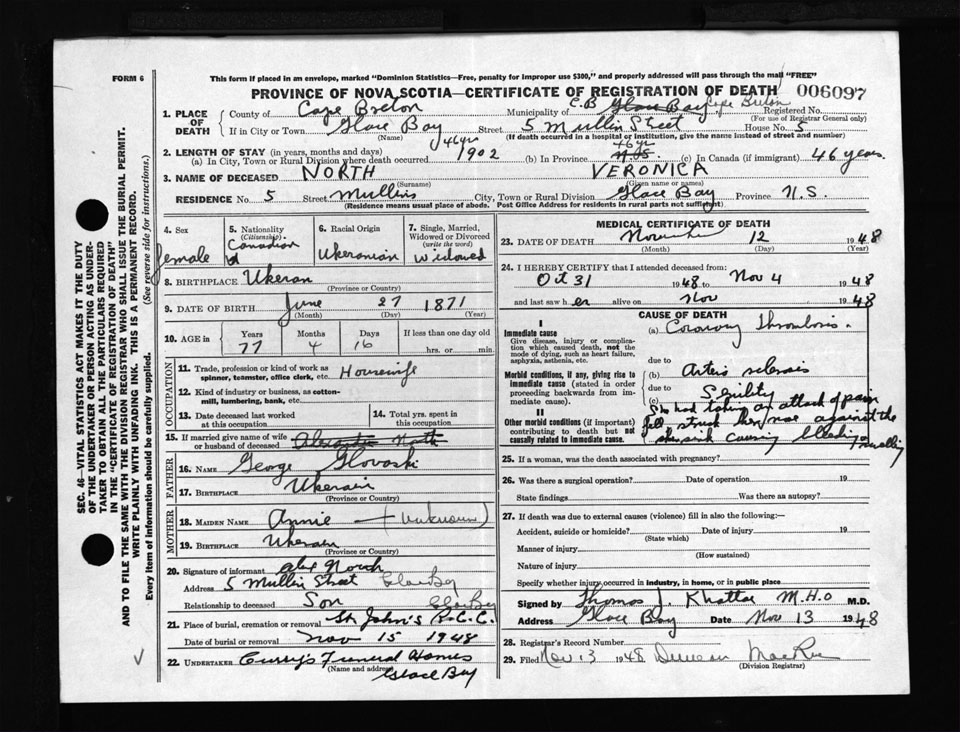 FORM 6
This form if placed in an envelope, marked "Dominion Statistics—Free, penalty for improper use $300," and properly addressed will pass through the mail "FREE"
PROVINCE OF NOVA SCOTIA—CERTIFICATE OF REGISTRATION OF DEATH 006097
1. PLACE OF DEATH
County of Cape Breton Municipality of C.B Glace Bay Cape Breton Registered No.
(For use of Registrar General only)
If in City or Town Glace Bay Street 5 Mullin Street House No. 5
(Name) (If death occurred in a hospital or institution, give the name instead of street and number)
2. LENGTH OF STAY (in years, months and days) 46 yrs 46 yr
(a) In City, Town or Rural Division where death occurred 1902 (b) In Province N.S. (c) In Canada (if immigrant) 46 years
3. NAME OF DECEASED NORTH VERONICA
(Surname) (Given name or names)
RESIDENCE No. 5 Street Mullins City, Town or Rural Division Glace Bay Province N.S.
(Residence means usual place of abode. Post Office Address for residents in rural parts not sufficient)
4. Sex
female
5. Nationality
(Citizenship)
Canadian
6. Racial Origin
Ukeranian
7. Single, Married, Widowed or Divorced
(write the word)
Widowed
8. BIRTHPLACE Ukeran
(Province or Country)
9. DATE OF BIRTH June 27 1871
(Month) (Day) (Year)
10. AGE in
Years Months Days If less than one day old
77 4 16 hrs. or min.
OCCUPATION
11. Trade, profession or kind of work as Housewife
spinner, teamster, office clerk, etc.
12. Kind of industry or business, as cotton-
mill, lumbering, bank, etc.
13. Date deceased last worked
at this occupation
14. Total yrs. spent in
this occupation
15. If married give name of wife
or husband of deceased North
FATHER
16. NAME George Glovaski
17. BIRTHPLACE Ukerain
(Province or Country)
MOTHER
18. MAIDEN NAME Annie (unknown)
19. BIRTHPLACE Ukerain
(Province or Country)
20. Signature of informant Alex North
Address 5 Mullin Street Glace Bay
Relationship to deceased Son Glace Bay
21. Place of burial, cremation or removal St. John's R.C.C.
Date of burial or removal Nov 15 1948
22. UNDERTAKER Curry's Funeral Homes
(Name and address)
Glace Bay
MEDICAL CERTIFICATE OF DEATH
23. DATE OF DEATH November 12 1948
(Month) (Day) (Year)
24. I HEREBY CERTIFY that I attended deceased from:
Oct 31 1948 to Nov 4 1948
and last saw her alive on Nov 1948
CAUSE OF DEATH
I
Immediate cause (a) Coronary Thrombosis.
Give disease, injury or complica-
tion which caused death, not the
mode of dying, such as heart failure,
asphyxia, asthenia, etc.
due to
Morbid conditions, if any, giving rise to (b) Arterio sclerosis
immediate cause (stated in order
proceeding backwards from im-
mediate cause).
due to
(c) Senility
II
Other morbid conditions (if important)
contributing to death but not
causally related to immediate cause.
She had taking an attack of pain
fell struck her nose against the
causing bleeding
25. If a woman, was the death associated with pregnancy?
26. Was there a surgical operation? Date of operation 19
State findings Was there an autopsy?
27. If death was due to external causes (violence) fill in also the following:—
Accident, suicide or homicide? Date of injury 19
(State which)
Manner of injury
(How sustained)
Nature of injury
Specify whether injury occurred in industry, in home, or in public place
Signed by Thomas J. Khattar M.H.O M.D.
Address Glace Bay Date Nov 13 1948
28. Registrar's Record Number
29. Filed Nov 13 1948 Duncan MacRae
(Division Registrar)
SEC. 46—VITAL STATISTICS ACT MAKES IT THE DUTY
OF THE UNDERTAKER OR PERSON ACTING AS UNDER-
TAKER TO OBTAIN ALL THE PARTICULARS REQUIRED
IN THE "CERTIFICATE OF REGISTRATION OF DEATH"
AND TO FILE THE SAME WITH THE DIVISION REGISTRAR WHO SHALL ISSUE THE BURIAL PERMIT.
WRITE PLAINLY WITH UNFADING INK. THIS IS A PERMANENT RECORD.
Every item of information should be carefully supplied. (See reverse side for instructions.)